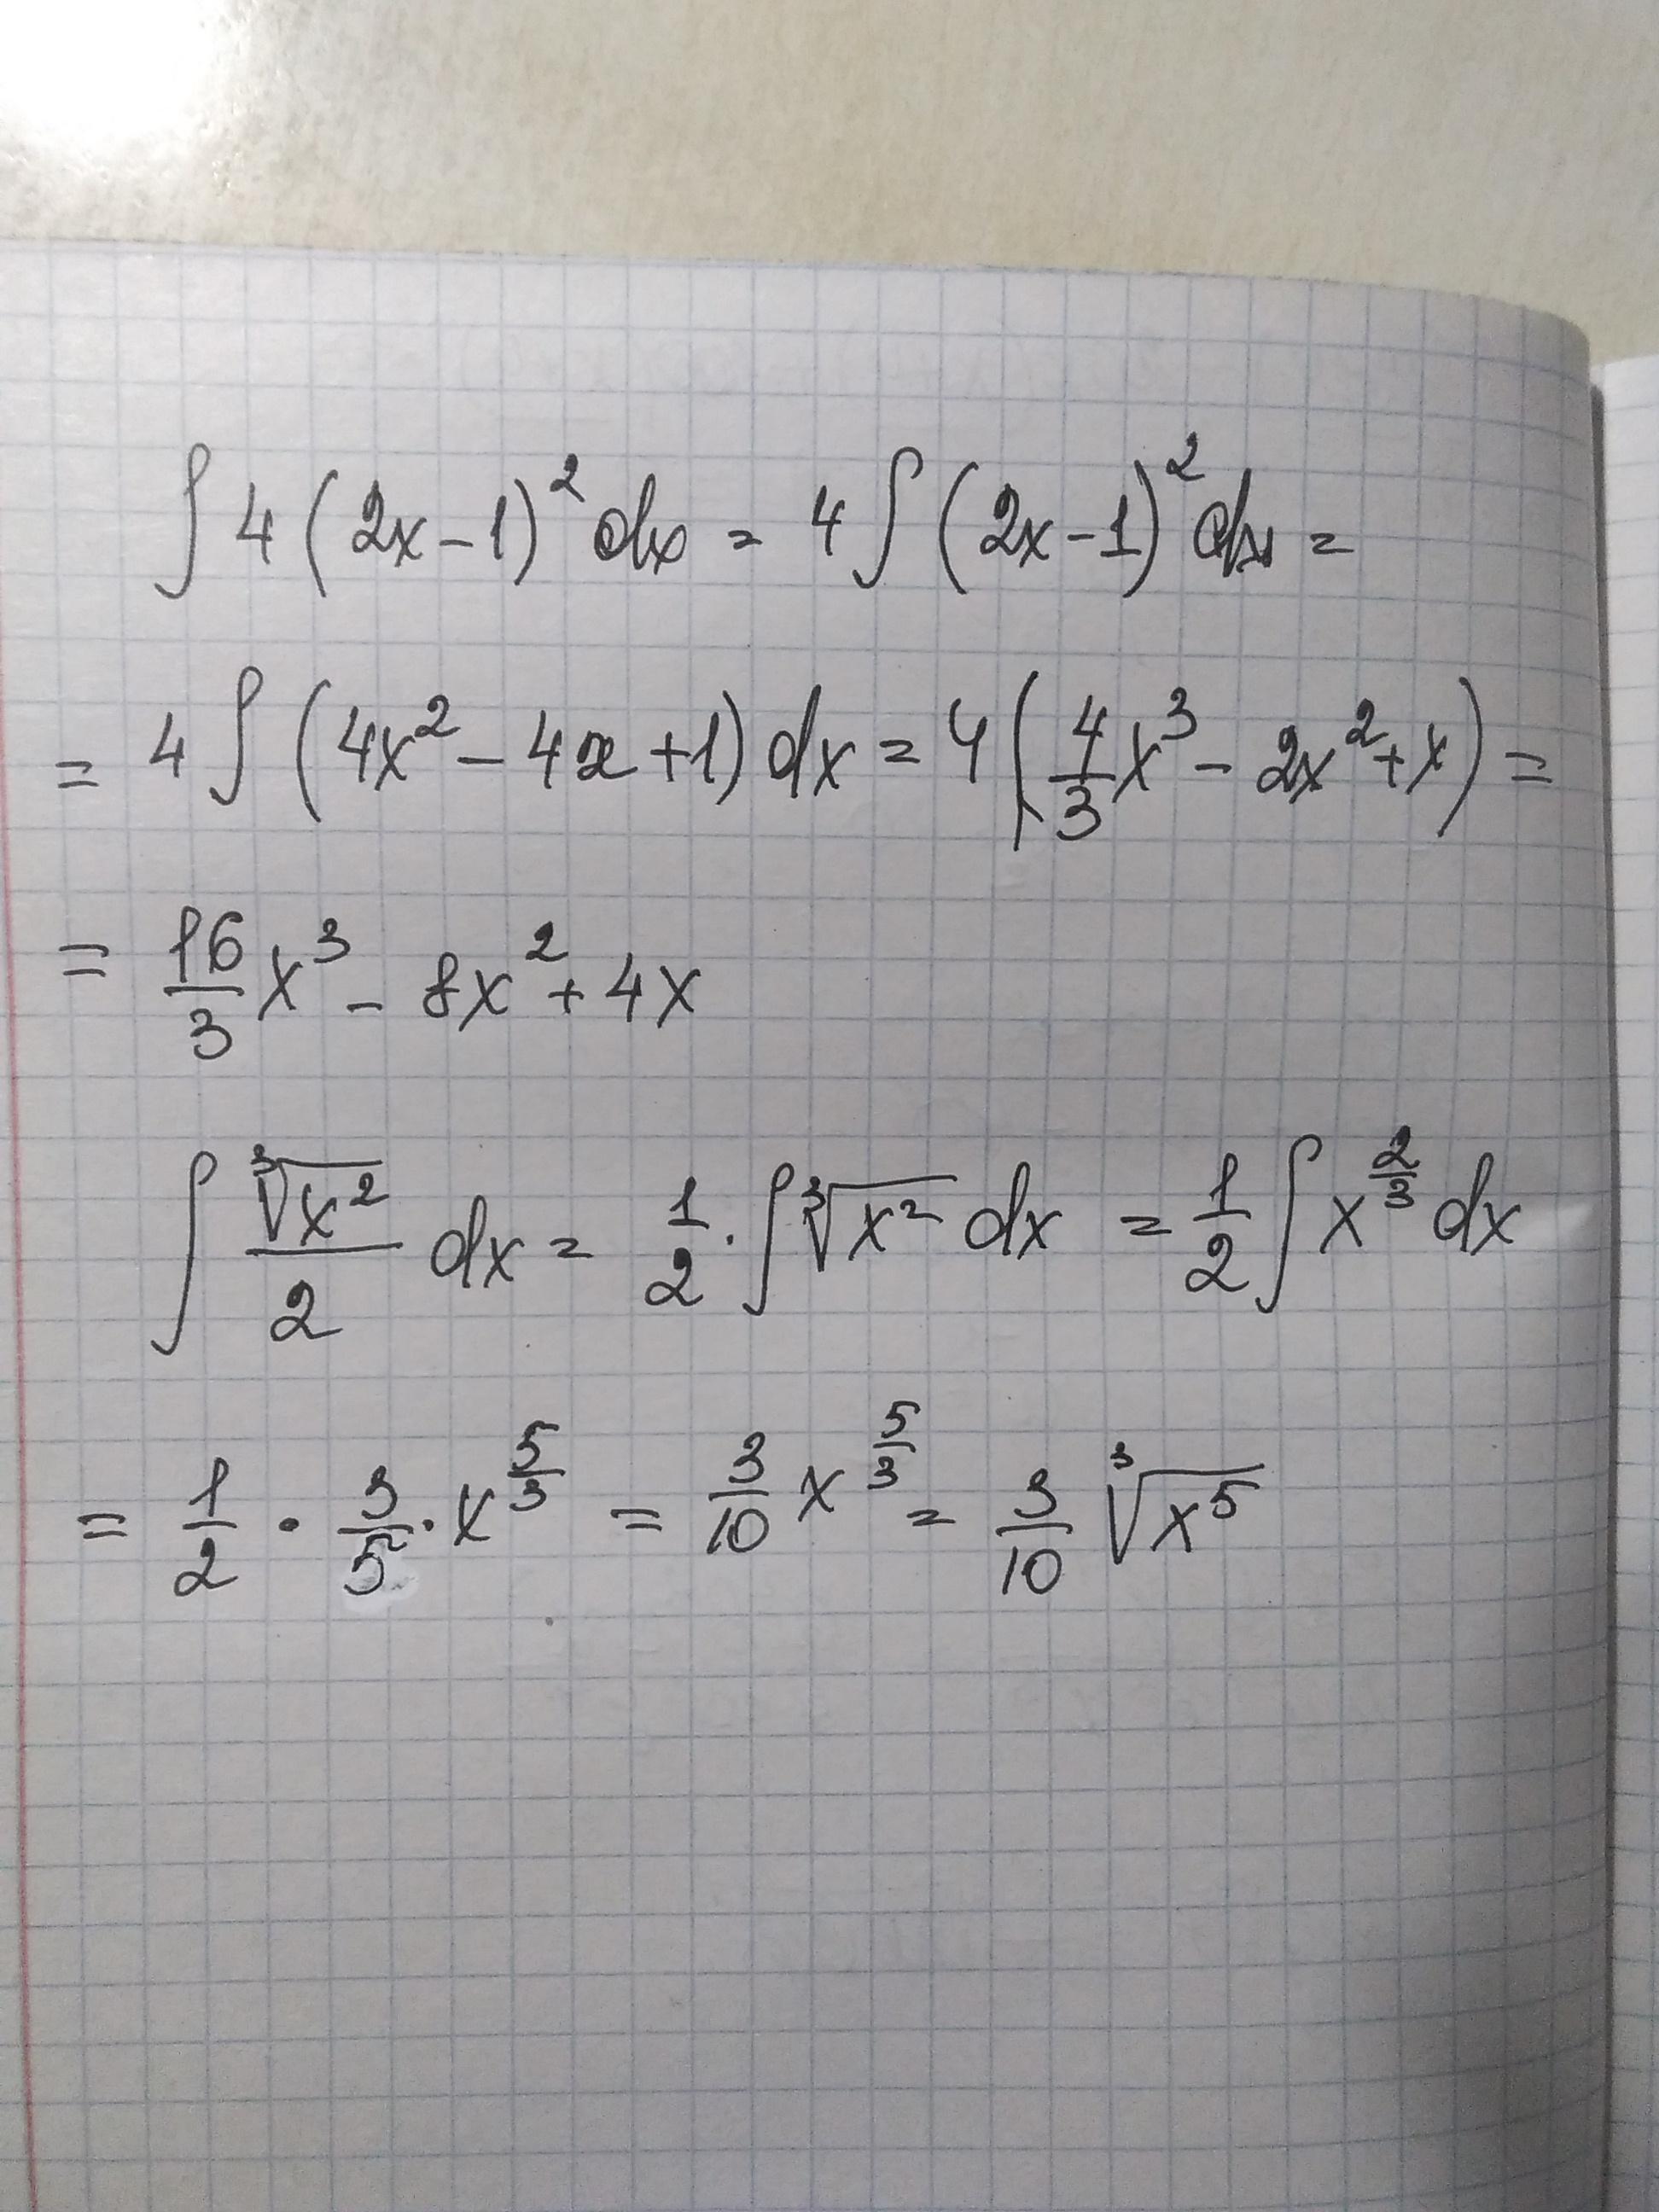 ∫ 4 (2x - 1)² dx = 4 ∫ (2x - 1)² dx =
= 4 ∫ (4x² - 4x + 1) dx = 4 (4/3 x³ - 2x² + x) =
= 16/3 x³ - 8x² + 4x
∫ ∛x²/2 dx = 1/2 · ∫ ∛x² dx = 1/2 ∫ x^(2/3) dx
= 1/2 · 3/5 · x^(5/3) = 3/10 x^(5/3) = 3/10 ∛x⁵